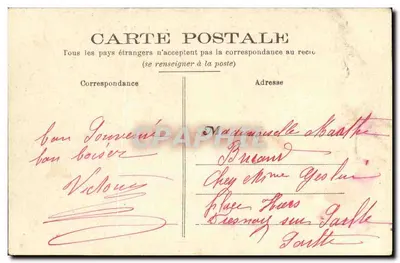 CARTE POSTALE
Tous les pays étrangers n'acceptent pas la correspondance au recto
(se renseigner à la poste)
Correspondance
Adresse
bon Souvenir
bon baiser
Victor
Mademoiselle Marthe
Chez Mme
place
sur Sarthe
Sarthe